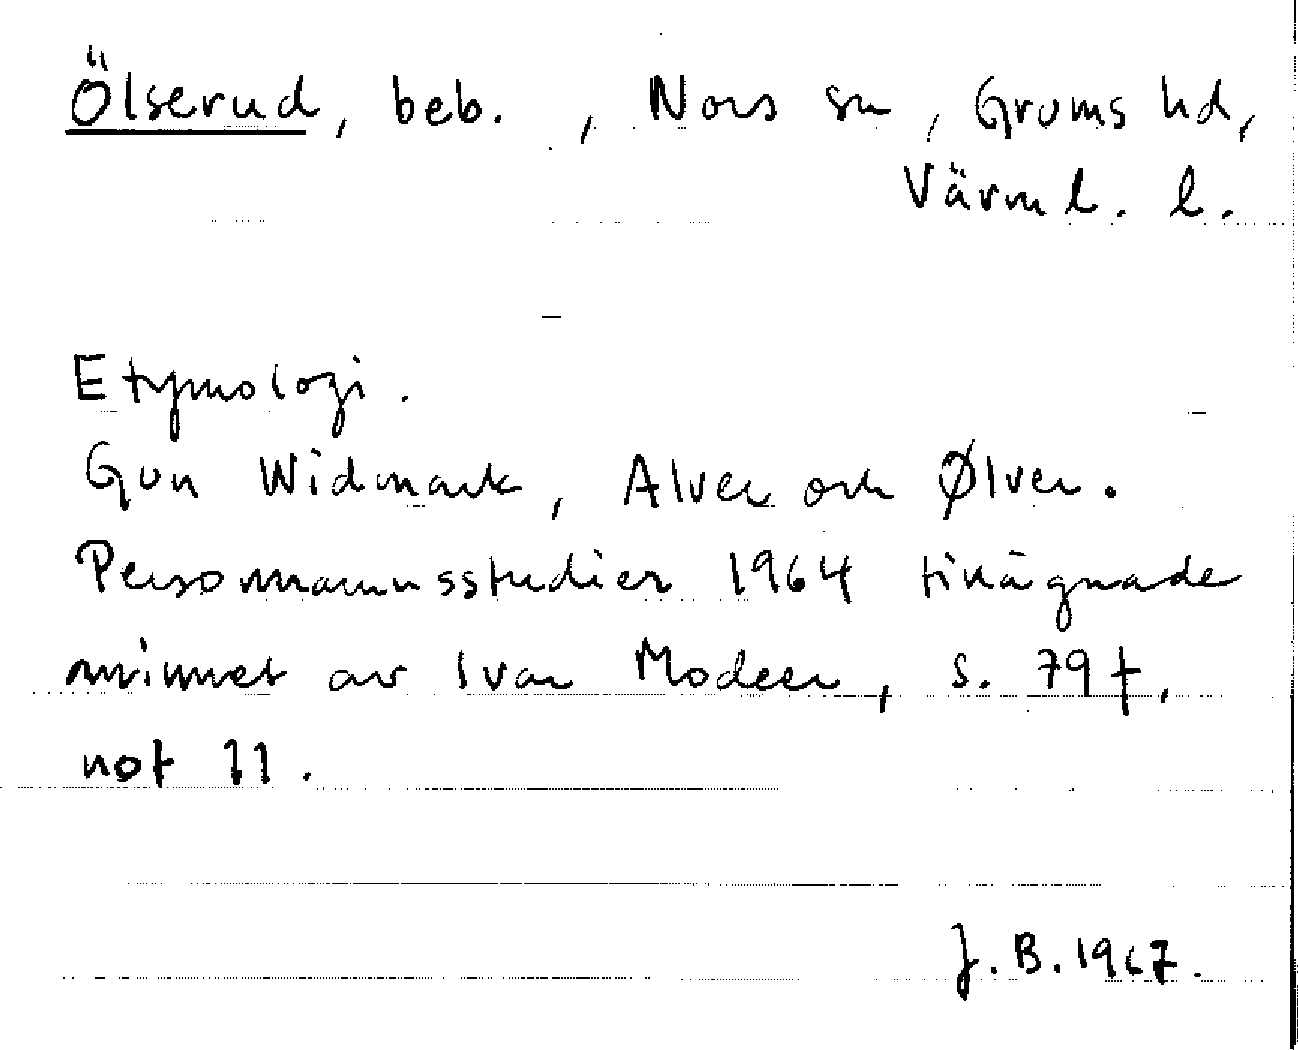 Ölserud, beb. , Nors sn, Grums hd,
Värml. l.
Etymologi.
Gun Widmark, Alver och Ølver.
Personnamnsstudier 1964 tillägnade
minnet av Ivar Modeer, s. 79 f,
not 11.
J. B. 1967.